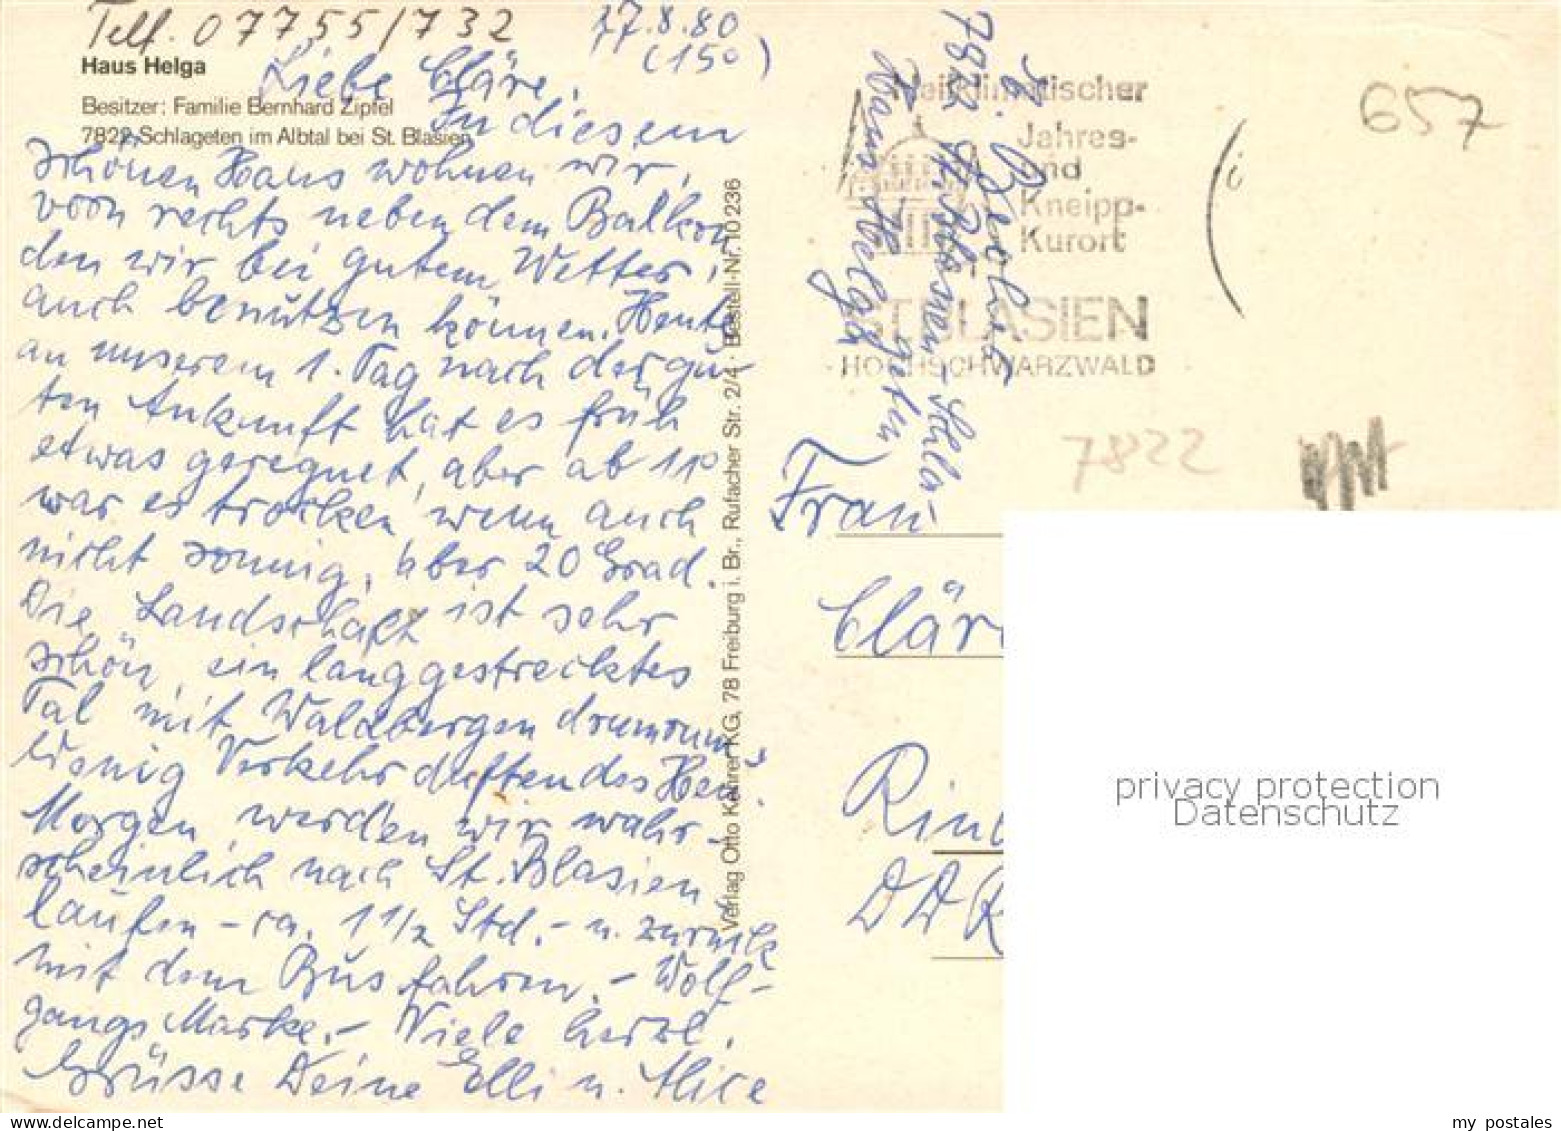 Telf. 07755/732
17.8.80
(15°)
Haus Helga
Besitzer: Familie Bernhard Zipfel
7822 Schlageten im Albtal bei St. Blasien
Liebe Cläre,
In diesem
schönen Haus wohnen wir,
vorn rechts neben dem Balkon
den wir bei gutem Wetter,
auch benützen können. Heute
an unserem 1. Tag nach der gu-
ten Ankunft hat es früh
etwas geregnet, aber ab 11°
war es trocken, wenn auch
nicht sonnig, aber 20 Grad.
Die Landschaft ist sehr
schön, ein langgestrecktes
Tal mit Waldbergen drumrum,
Wenig Verkehr duftendes Heu.
Morgen werden wir wahr-
scheinlich nach St. Blasien
laufen - ca. 1 1/2 Std. - u. zurück
mit dem Bus fahren. - Wolf-
gangs Marke. - Viele herzl.
Grüsse Deine Elli u. Alice
Verlag Otto Kehrer KG, 78 Freiburg i. Br., Rufacher Str. 2/4 · Bestell-Nr. 10 236
7822 St. Blasien-Schla-
geten
Haus Helga
Heilklimatischer
Jahres-
und
Kneipp-
Kurort
ST. BLASIEN
HOCHSCHWARZWALD
657
7822
Frau
Clär
Rin
DDR
privacy protection
Datenschutz
delcampe.net
my_postales